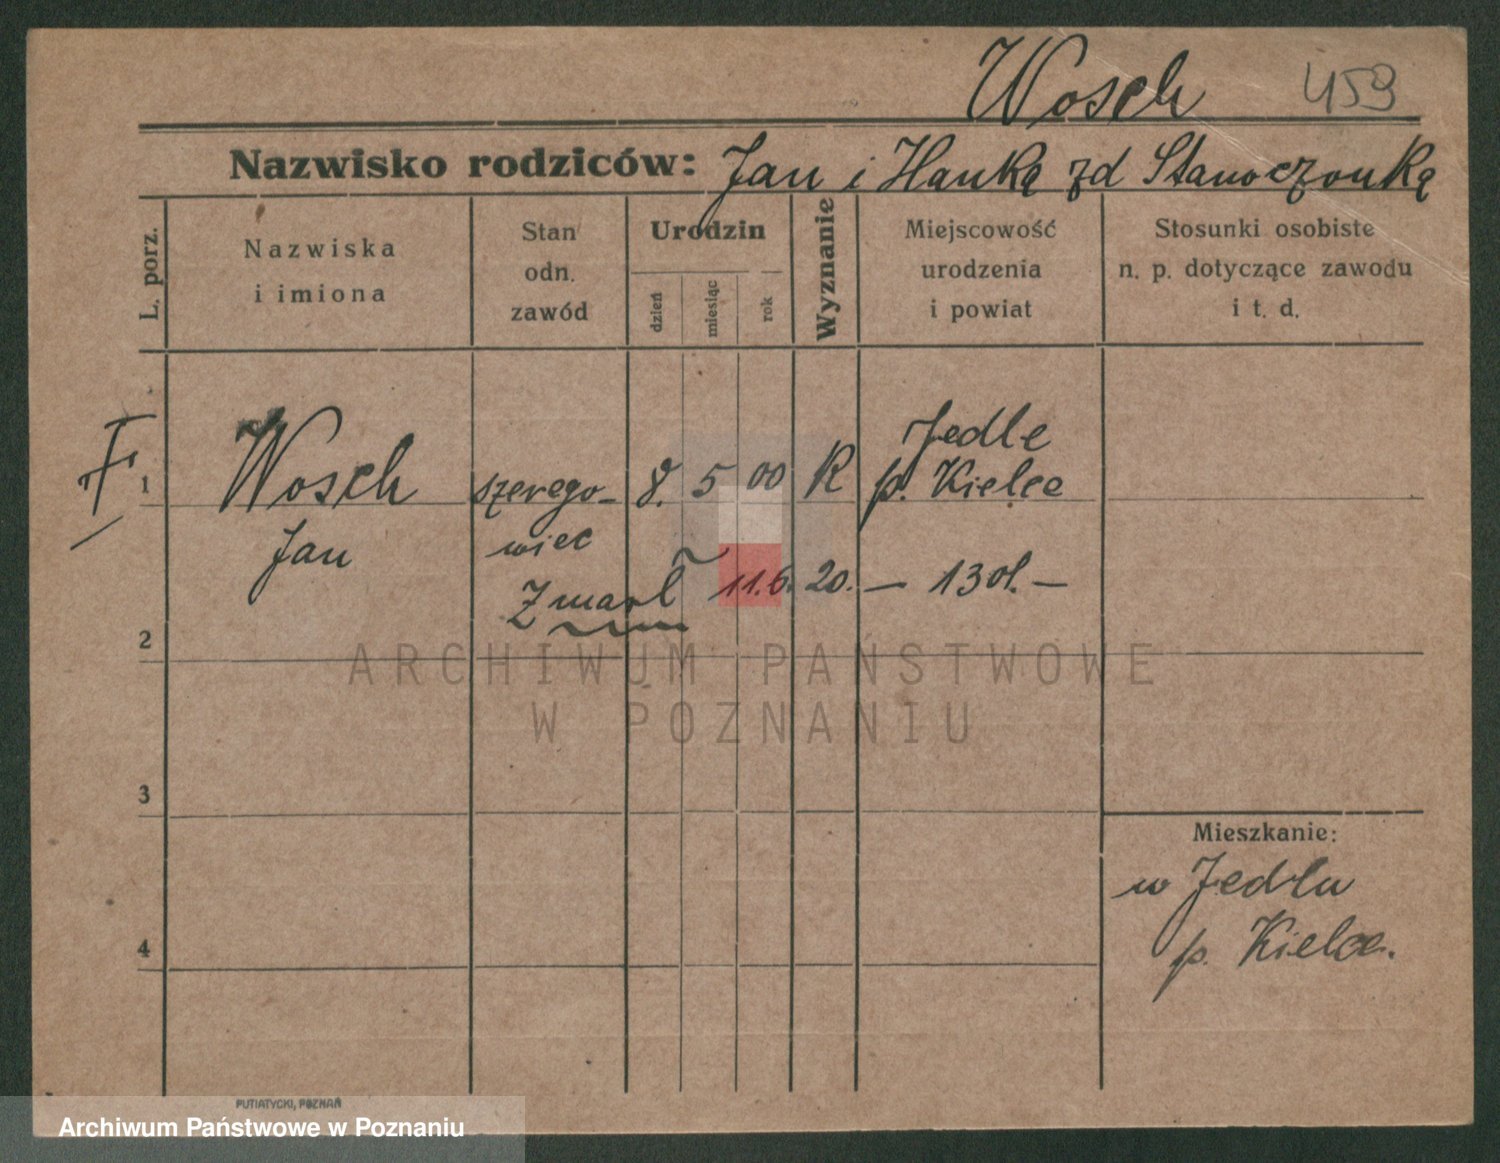 Wosch 459
Nazwisko rodziców: Jan i Hanką zd Stanoczonką
L. porz.
Nazwiska
i imiona
Stan
odn.
zawód
Urodzin
dzień
miesiąc
rok
Wyznanie
Miejscowość
urodzenia
i powiat
Stosunki osobiste
n. p. dotyczące zawodu
i t. d.
1 Wosch szerego- 8. 5 00 R Jedle
p. Kielce
Jan wiec
Zmarł 11.6. 20. –
2
ARCHIWUM PAŃSTWOWE
W POZNANIU
3
Mieszkanie:
w Jedlu
4
p. Kielce.
PUTIATYCKI, POZNAŃ
Archiwum Państwowe w Poznaniu